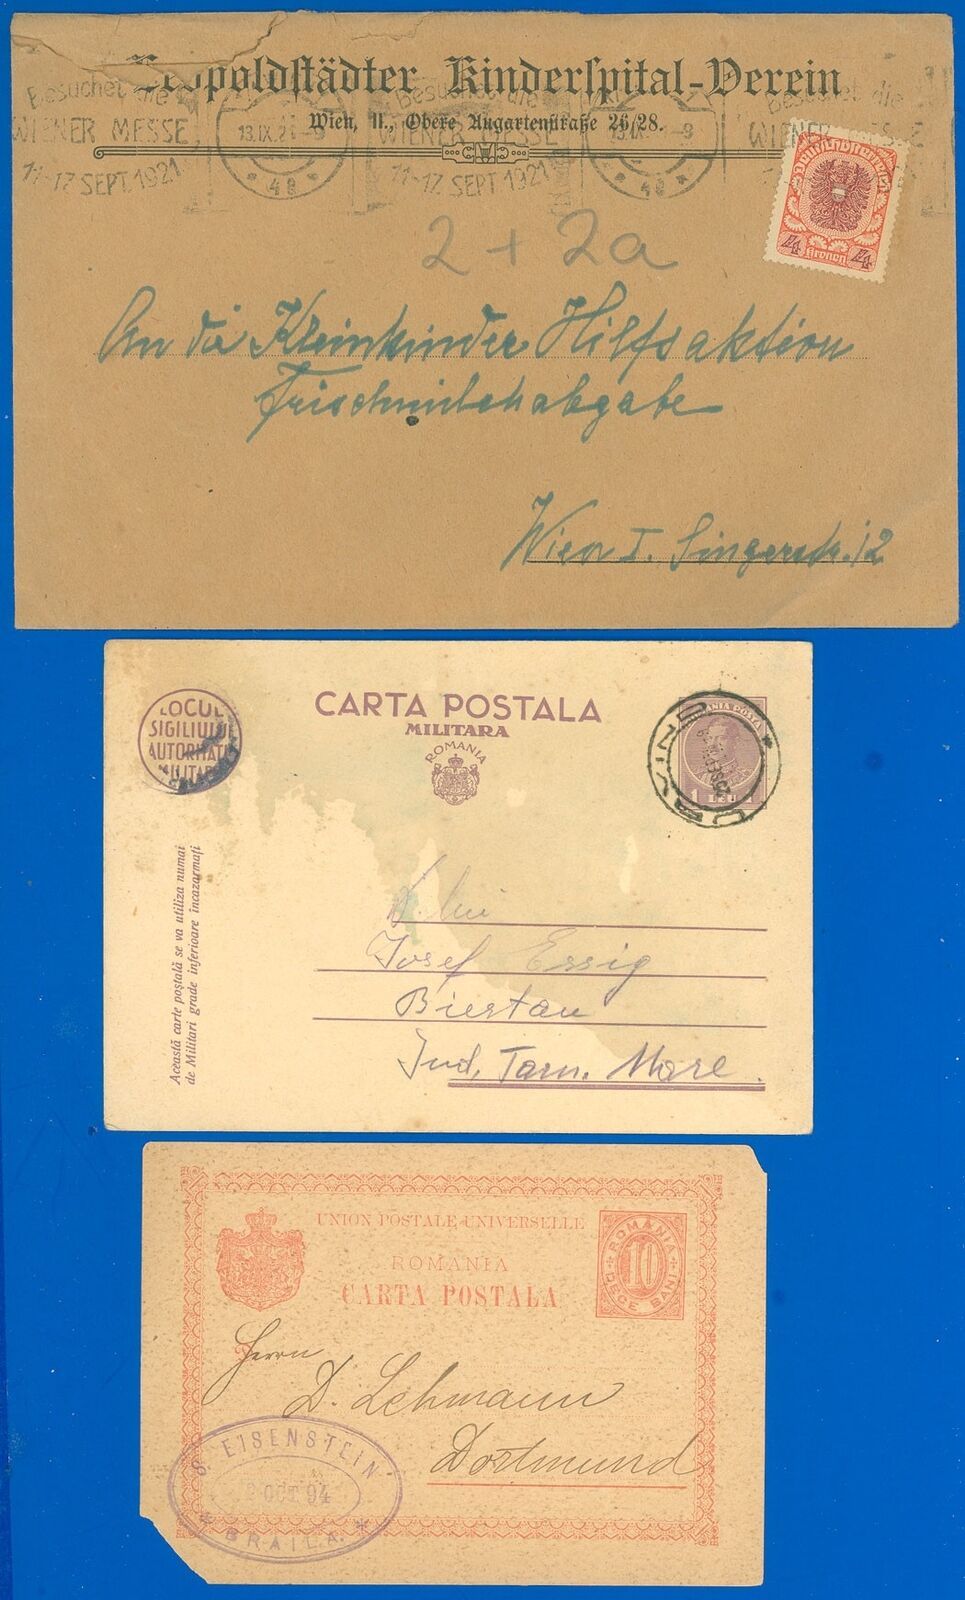 Leopoldstädter Kinderspital-Verein
Wien, II., Obere Augartenstraße 26/28.
Besuchet die
WIENER MESSE
11-17 SEPT. 1921
13.IX.21
* 48 *
Besuchet die
WIENER MESSE
11-17 SEPT 1921
* 48 *
Besuchet die
Deutschösterreich
4 Kronen 4
2 + 2a
An die Kleinkinder Hilfsaktion
Frischmilchabgabe
Wien I. Singerstr. 12
LOCUL
SIGILIULUI
AUTORITATII
MILITARE
CARTA POSTALA
MILITARA
ROMANIA
ROMANIA POSTA
1 LEU
Această carte poștală se va utiliza numai
de Militari grade inferioare incazarmați
D. lui
Josef Essig
Biestau
Jud. Tarn. Mare.
UNION POSTALE UNIVERSELLE
ROMANIA
CARTA POSTALA
ROMANIA
10
DECE BANI
Herrn
D. Lehmann
Dortmund
S. EISENSTEIN
OCT 94
* BRAILA *